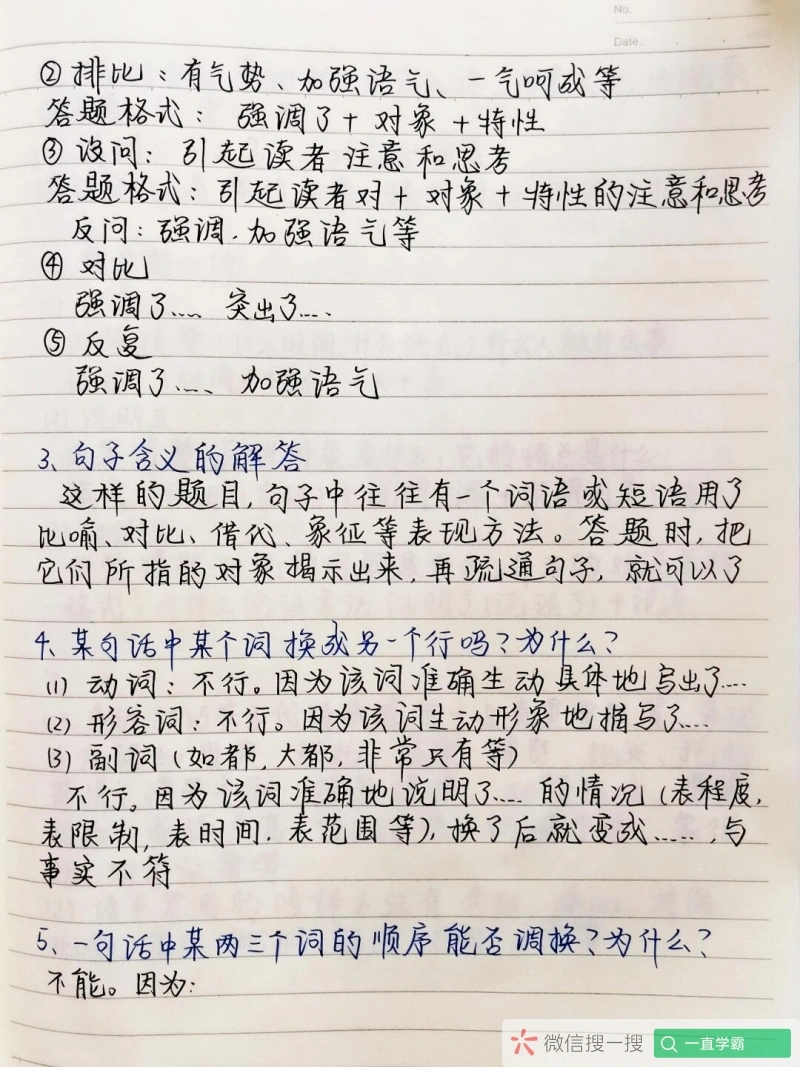 No.
Date.
② 排比：有气势、加强语气、一气呵成等
答题格式：强调了+对象+特性
③ 设问：引起读者注意和思考
答题格式：引起读者对+对象+特性的注意和思考
反问：强调.加强语气等
④ 对比
强调了…. 突出了….
⑤ 反复
强调了….、加强语气
3、句子含义的解答
这样的题目,句子中往往有一个词语或短语用了
比喻、对比、借代、象征等表现方法。答题时,把
它们所指的对象揭示出来,再疏通句子,就可以了
4、某句话中某个词换成另一个行吗?为什么?
(1) 动词：不行。因为该词准确生动具体地写出了….
(2) 形容词：不行。因为该词生动形象地描写了….
(3) 副词(如都,大都,非常只有等)
不行。因为该词准确地说明了….的情况(表程度,
表限制,表时间.表范围等),换了后就变成…..,与
事实不符
5、一句话中某两三个词的顺序能否调换?为什么?
不能。因为:
微信搜一搜 一直学霸